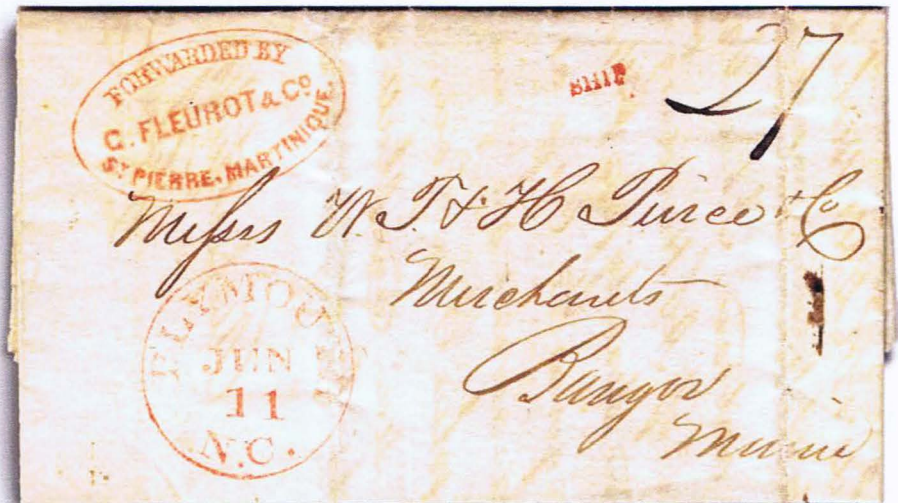 FORWARDED BY
G. FLEUROT & Co
ST PIERRE, MARTINIQUE.
SHIP
27
Messrs W. T. & H Pierce & Co
Merchants
Bangor
Maine
PLYMOUTH
JUN
11
N.C.